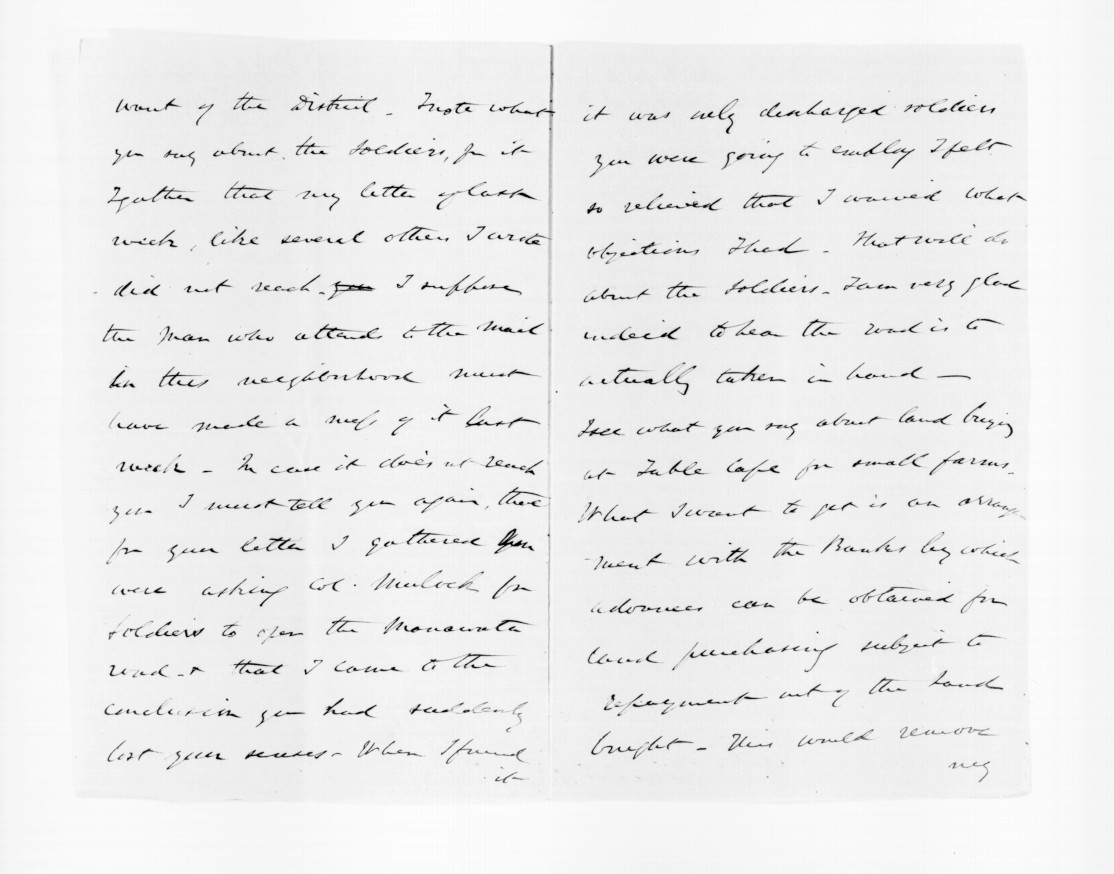 want of the District - I note what
you say about the Soldiers, fm it
I gather that my letter of last
week, like several others I wrote
did not reach you I suppose
the Man who attends to the Mail
in this neighborhood must
have made a mess of it last
week - In case it does not reach
you I must tell you again, that
fm your letter I gathered you
were asking Col. Mulock for
Soldiers to open the Manawatu
road - & that I came to the
conclusion you had suddenly
lost your senses - When I found
it
it was only discharged soldiers
you were going to employ I felt
so relieved that I waived what
objections I had - That will do
about the Soldiers - I am very glad
indeed to hear the road is to
actually taken in hand -
I see what you say about land buying
at Table Cape for small farms.
What I want to get is an arrange
-ment with the Banks by which
advances can be obtained for
land purchasing subject to
repayment out of the land
bought - This would remove
my